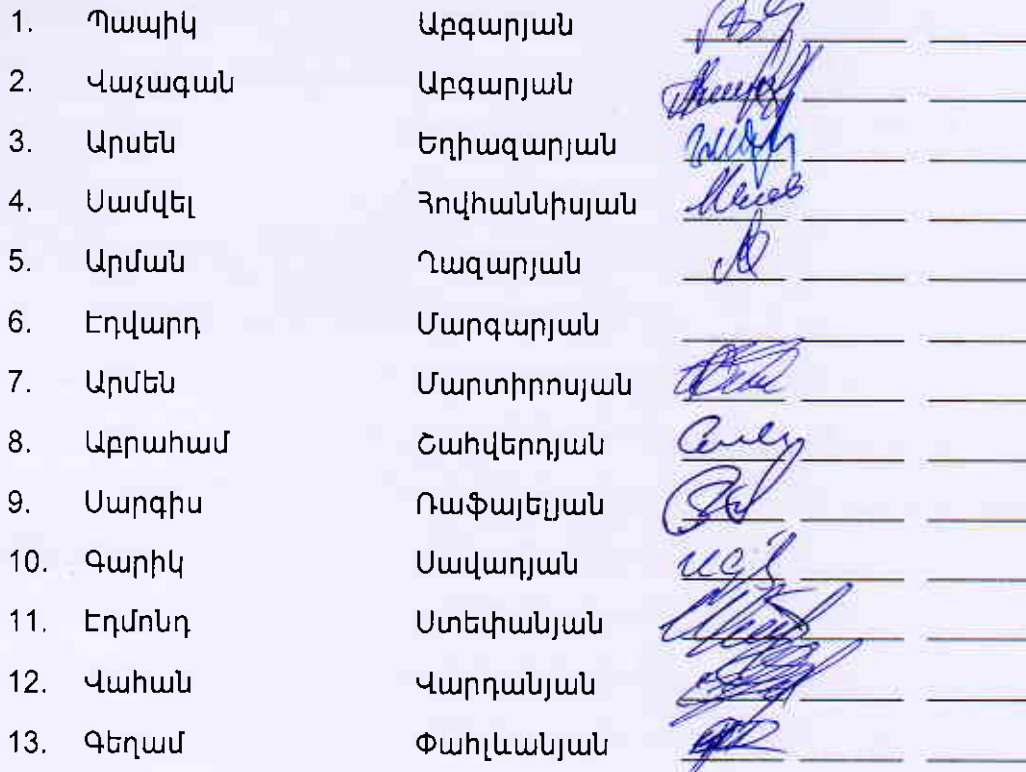 1. Պապիկ Աբգարյան
2. Վաչագան Աբգարյան
3. Արսեն Եղիազարյան
4. Սամվել Հովհաննիսյան
5. Արման Ղազարյան
6. Էդվարդ Մարգարյան
7. Արմեն Մարտիրոսյան
8. Աբրահամ Շահվերդյան
9. Սարգիս Ռաֆայելյան
10. Գարիկ Սավադյան
11. Էդմոնդ Ստեփանյան
12. Վահան Վարդանյան
13. Գեղամ Փահլևանյան